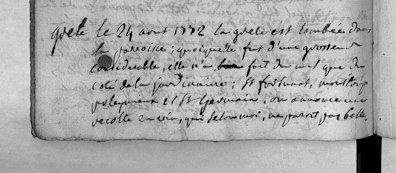 grele le 24 aout 1772 la grele est tombée dans
la paroisse; quoiquelle fut d'une grosseur
considerable, elle n'a fait du mal que du
coté de la jourdinaire; St fortunat,
et St Germain. on annonce une
recolte en vin, qui selon moi, ne paroit pas belle.